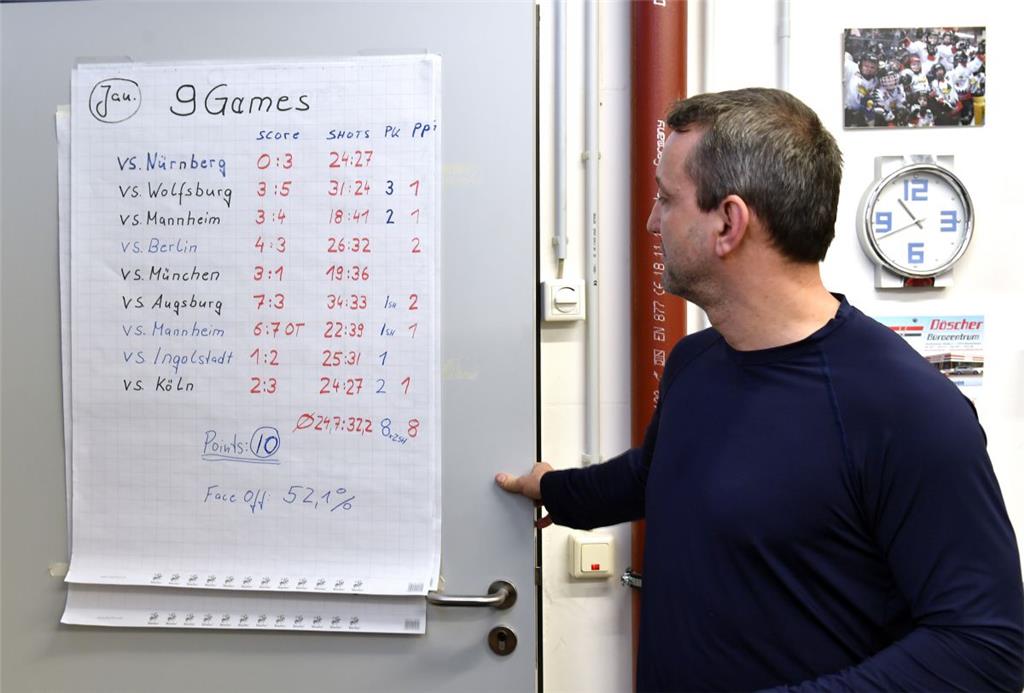 Jan. 9 Games
SCORE SHOTS PK PP
VS. Nürnberg 0:3 24:27
VS. Wolfsburg 3:5 31:24 3 1
VS. Mannheim 3:4 18:41 2 1
VS. Berlin 4:3 26:32 2
VS. München 3:1 19:36
VS. Augsburg 7:3 34:33 1SH 2
VS. Mannheim 6:7 OT 22:39 1SH 1
VS. Ingolstadt 1:2 25:31 1
VS. Köln 2:3 24:27 2 1
Ø 24,7:32,2 8+2SH 8
Points: 10
Face Off: 52,1%
Germany
DIN EN 877 CE 18 11
12
9 3
6
Döscher
Bürozentrum